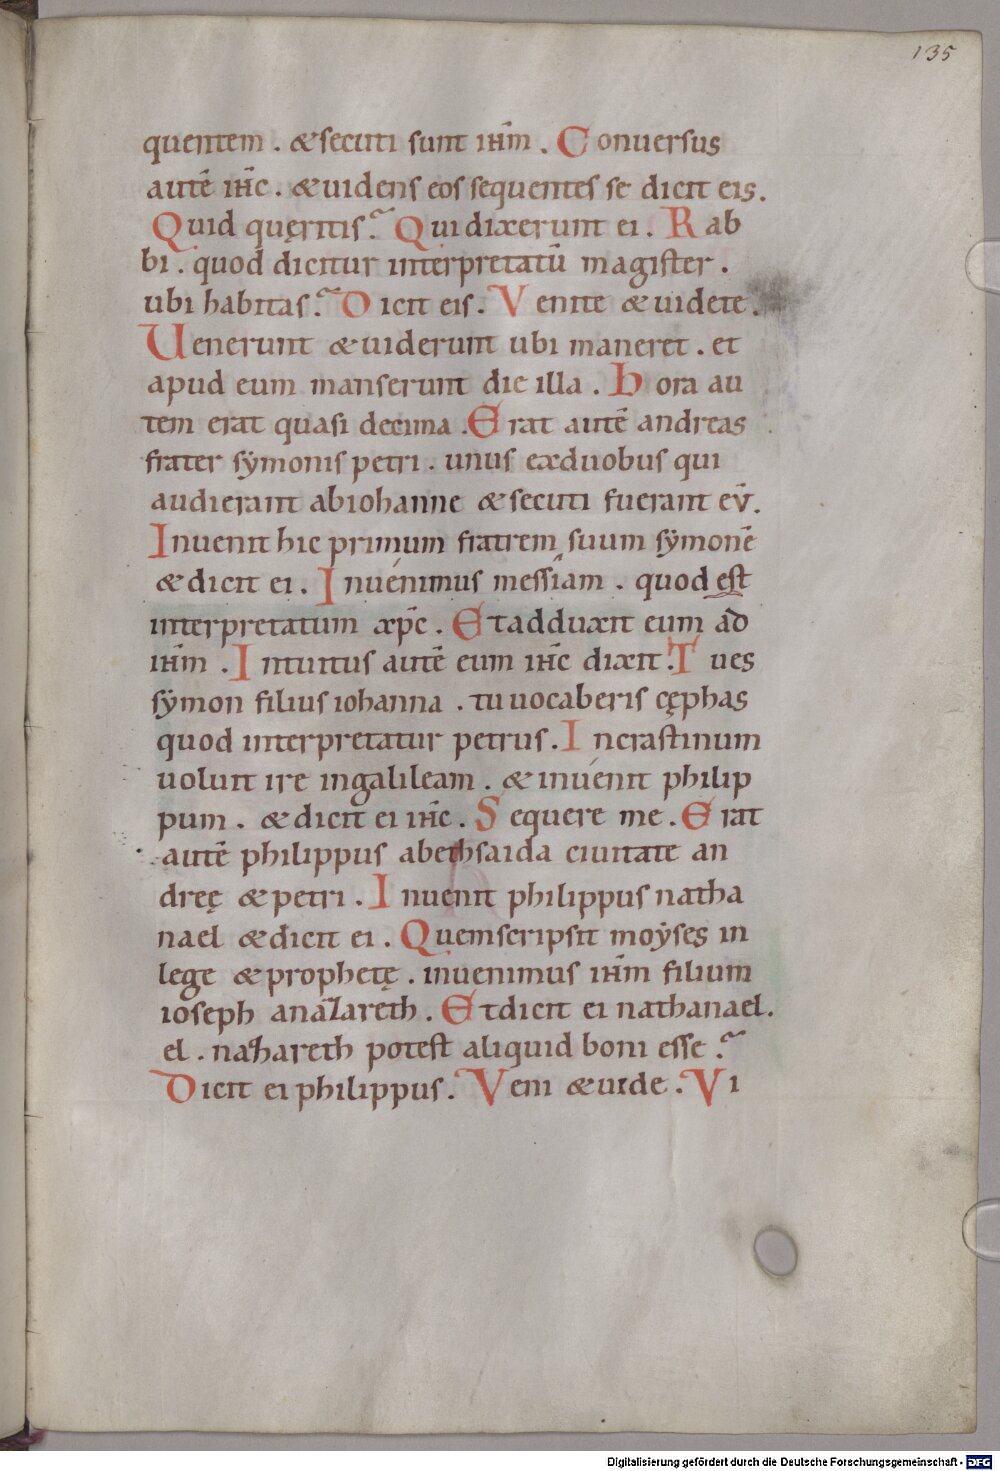 135
quentem . & secuti sunt ihm̄ . Conuersus
autē ihc̄ . & uidens eos sequentes se dicit eis.
Quid quęritis? Qui dixerunt ei . Rab
bi . quod dicitur interpretatū magister .
ubi habitas? Dicit eis . Venite & uidete .
Uenerunt & uiderunt ubi maneret . et
apud eum manserunt die illa . hora au
tem erat quasi decima . Erat autē andreas
frater sẏmonis petri . unus exduobus qui
audierant abiohanne & secuti fuerant eū.
Inuenit hic primum fratrem suum sẏmonē
& dicit ei . Inuénimus messiam . quod est
interpretatum xpc̄ . Et adduxit eum ad
ihm̄ . Intuitus autē eum ihc̄ dixit . Tu es
sẏmon filius iohanna . tu uocaberis cęphas
quod interpretatur petrus . Incrastinum
uoluit ire ingalileam . & inuénit philip
pum . & dicit ei ihc̄ . Sequere me . Erat
autē philippus abethsaida ciuitate an
dreę & petri . Inuenit philippus natha
nael & dicit ei . Quem scripsit moẏses in
lege & prophetę . inuenimus ihm̄ filium
ioseph anazareth . Et dicit ei nathanael.
el . nazhareth potest aliquid boni esse ?
Dicit ei philippus . Veni & uide . Vi
Digitalisierung gefördert durch die Deutsche Forschungsgemeinschaft - DFG